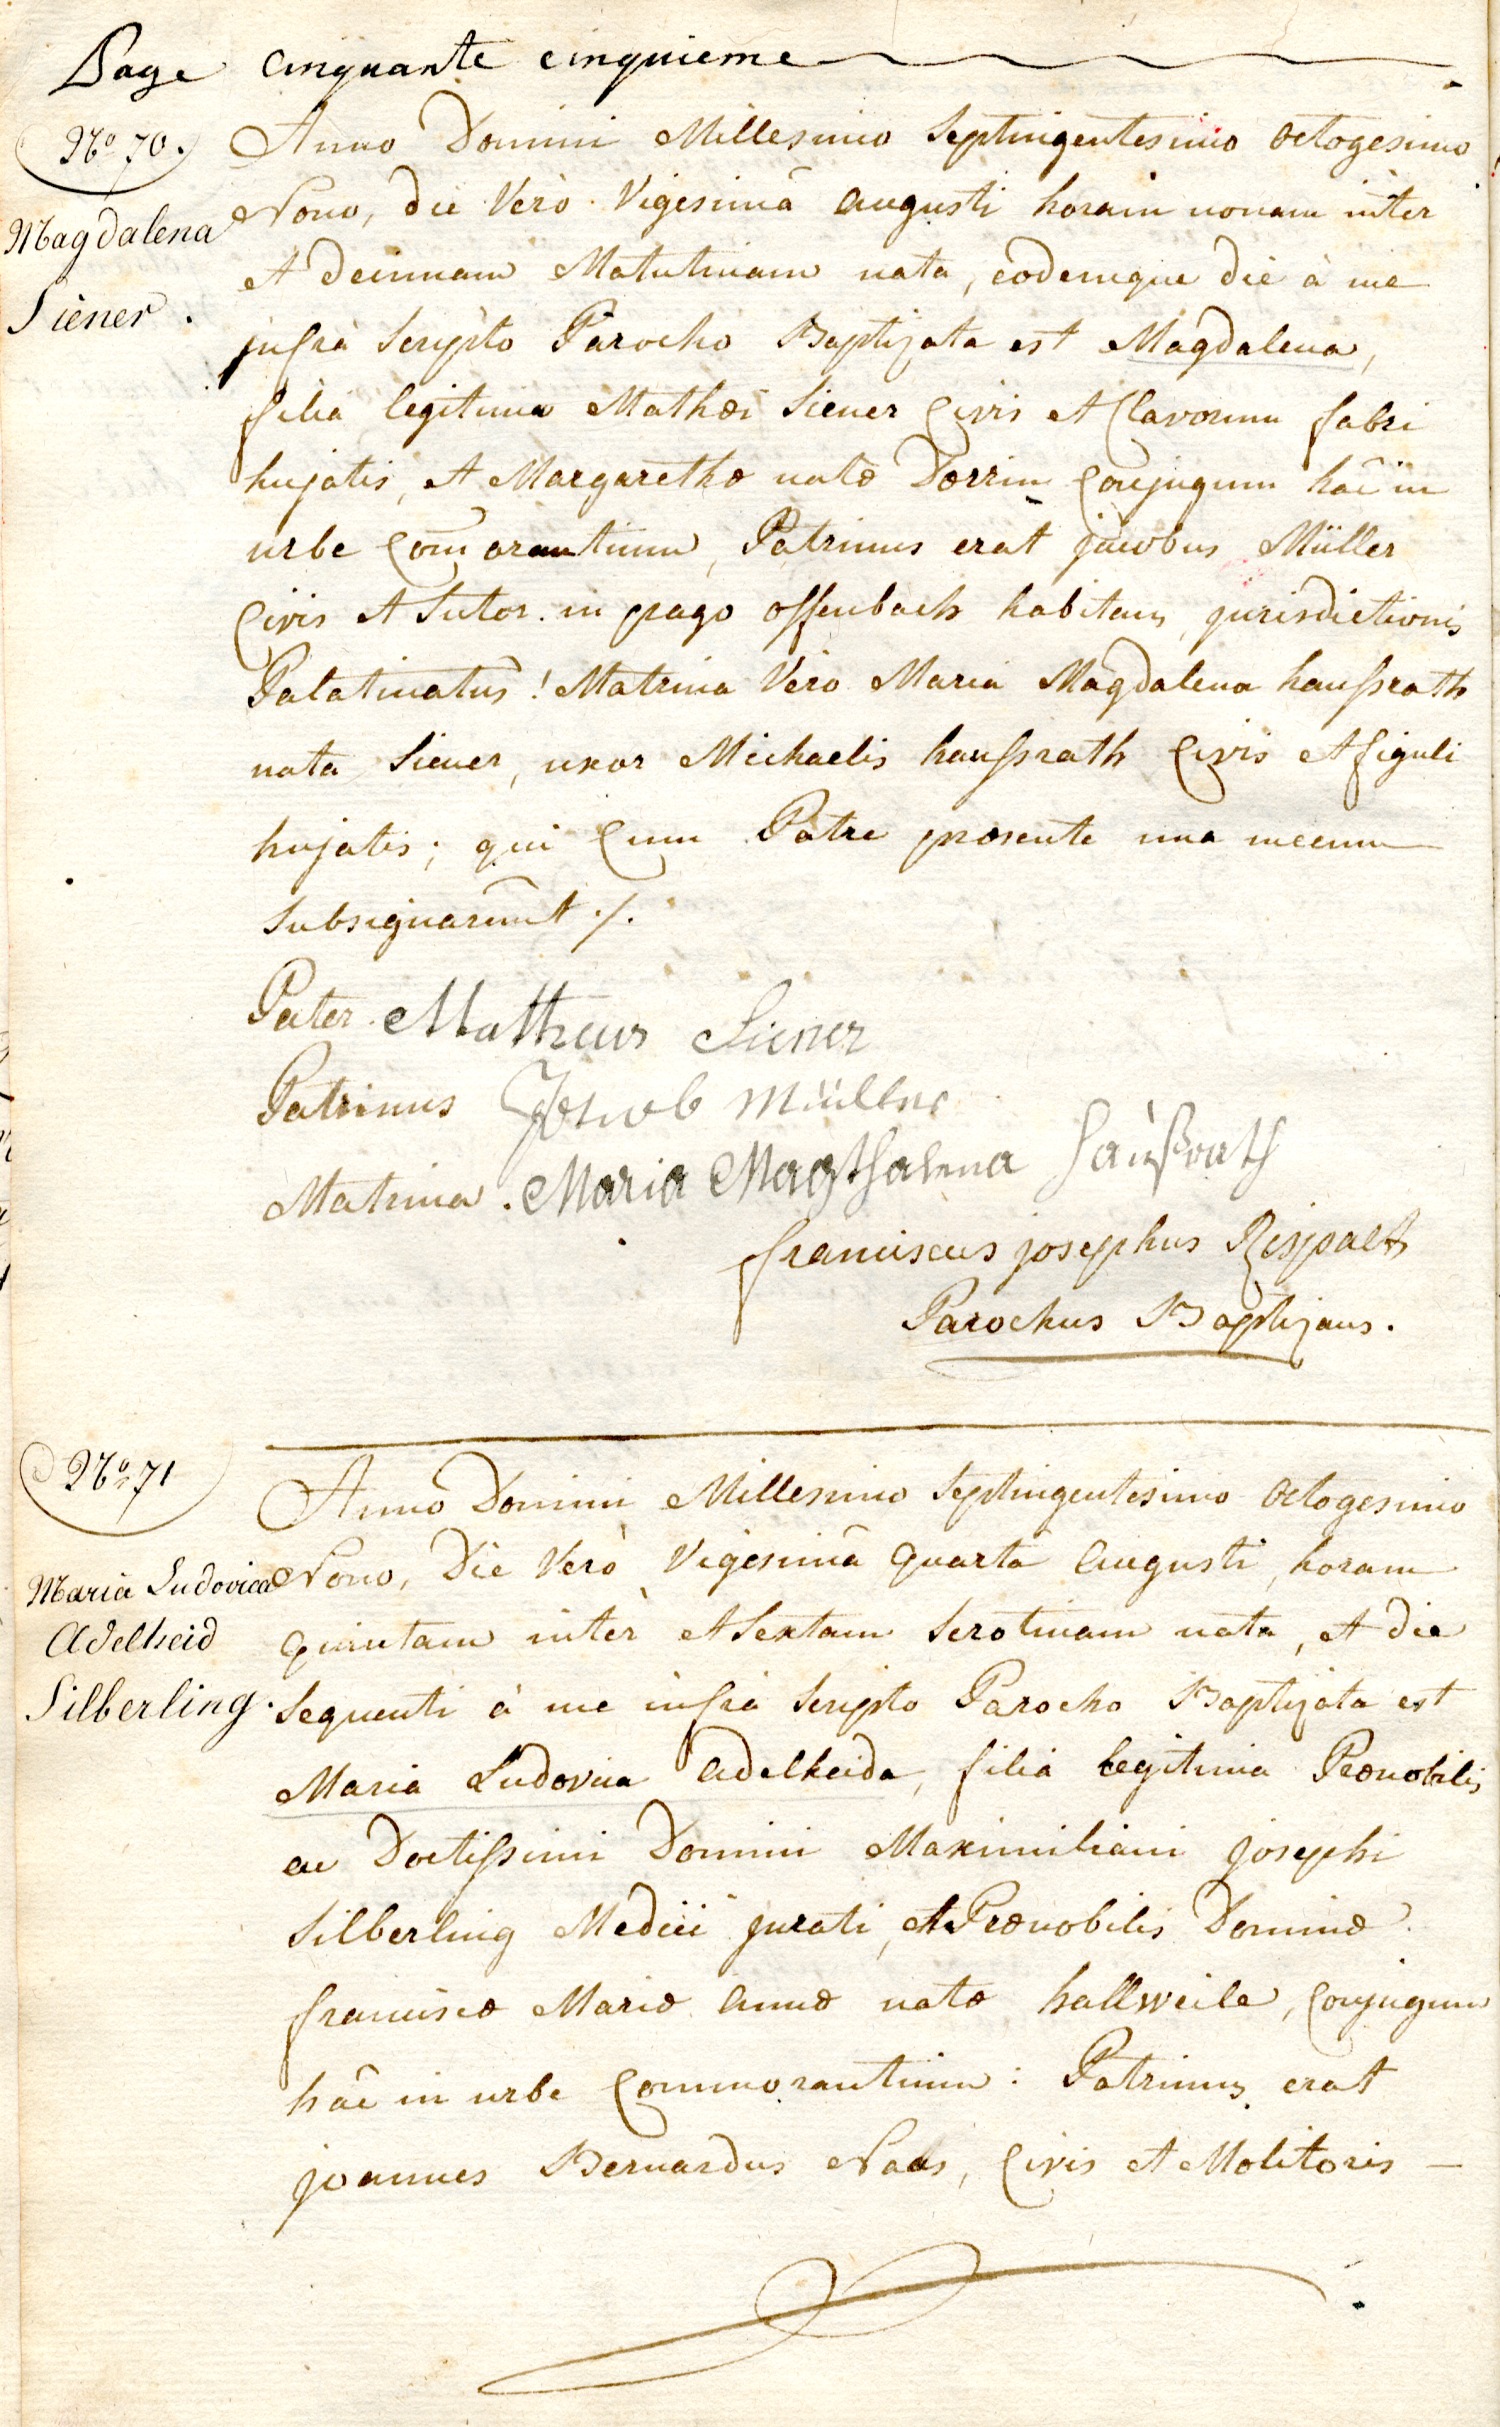 Page cinquante cinquieme
No 70.
Magdalena
Siener.
Anno Domini Millesimo Septingentesimo octogesimo
Nono, die Verò Vigesimâ augusti horam nonam inter
et decimam Matutinam nata, eodemque die à me
jnfra Scripto Parocho Baptizata est Magdalena,
filia legitima Mathæi Siener Civis et Clavorum fabri
hujatis, et Margarethæ natæ Dörrin Conjugum hâc in
urbe Com̄orantium, Patrinus erat jacobus Müller
Civis et Sutor in pago offenbach habitans, jurisdictionis
Palatinatûs! Matrina Vero Maria Magdalena haußrath
nata Siener, uxor Michaelis haußrath Civis et figuli
hujatis; qui Cum Patre præsente una mecum
Subsignarunt ./.
Pater Mattheus Siener
Patrinus Jacob Müller
Matrina. Maria Magthalena haußrath
franciscus josephus Rispalt
Parochus Baptizans.
No 71
Maria Ludovica
Adelheid
Silberling.
Anno Domini Millesimo Septingentesimo octogesimo
Nono, Die Verò Vigesimâ quartâ augusti, horam
quintam inter et Sextam Serotinam nata, et die
Sequenti à me infra Scripto Parocho Baptizata est
Maria Ludovica adelheida, filia legitima Prænobilis
ac Doctissimi Domini Maximiliani josephi
Silberling Medici jurati, et Prænobilis Dominæ
franciscæ Mariæ annæ natæ hallweile, Conjugum
hâc in urbe Commorantium: Patrinus erat
joannes Bernardus Naas, Civis et Molitoris –